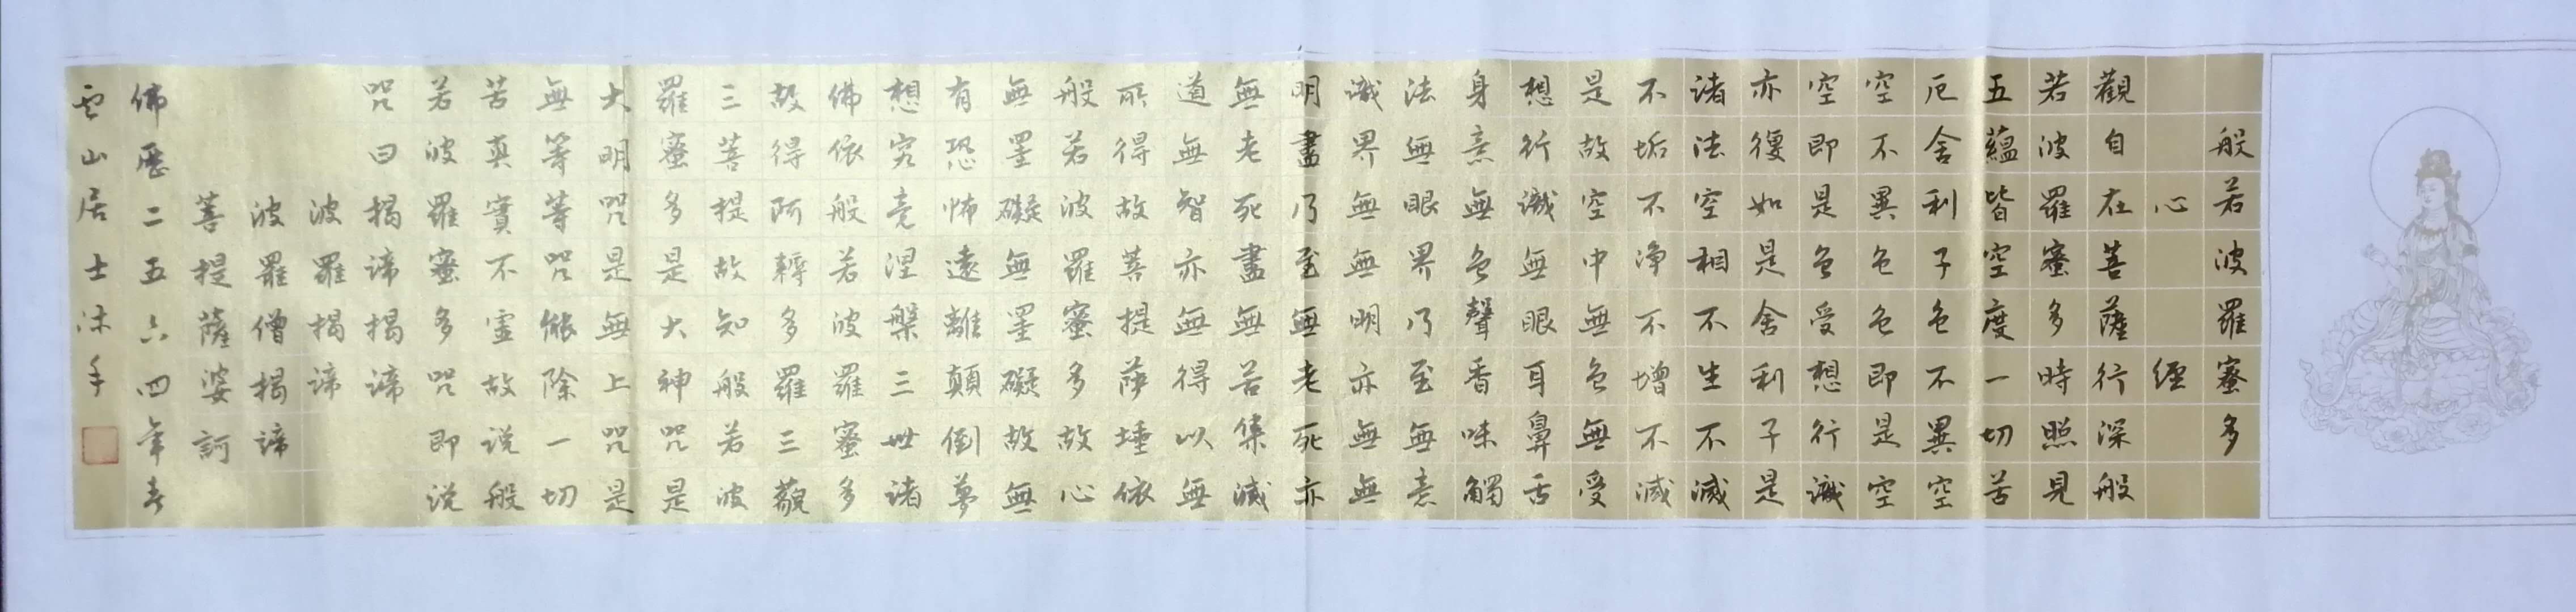 般若波羅蜜多
心經
觀自在菩薩行深般
若波羅蜜多時照見
五蘊皆空度一切苦
厄舍利子色不異空
空不異色色即是空
空即是色受想行識
亦復如是舍利子是
诸法空相不生不滅
不垢不淨不增不減
是故空中無色無受
想行識無眼耳鼻舌
身意無色聲香味觸
法無眼界乃至無意
識界無無明亦無無
明盡乃至無老死亦
無老死盡無苦集滅
道無智亦無得以無
所得故菩提薩埵依
般若波羅蜜多故心
無罣礙無罣礙故無
有恐怖遠離顛倒夢
想究竟涅槃三世诸
佛依般若波羅蜜多
故得阿耨多羅三藐
三菩提故知般若波
羅蜜多是大神咒是
大明咒是無上咒是
無等等咒能除一切
苦真實不虛故说般
若波羅蜜多咒即说
咒曰揭諦揭諦
波羅揭諦
波羅僧揭諦
菩提薩婆訶
佛歷二五六四年春
云山居士沐手